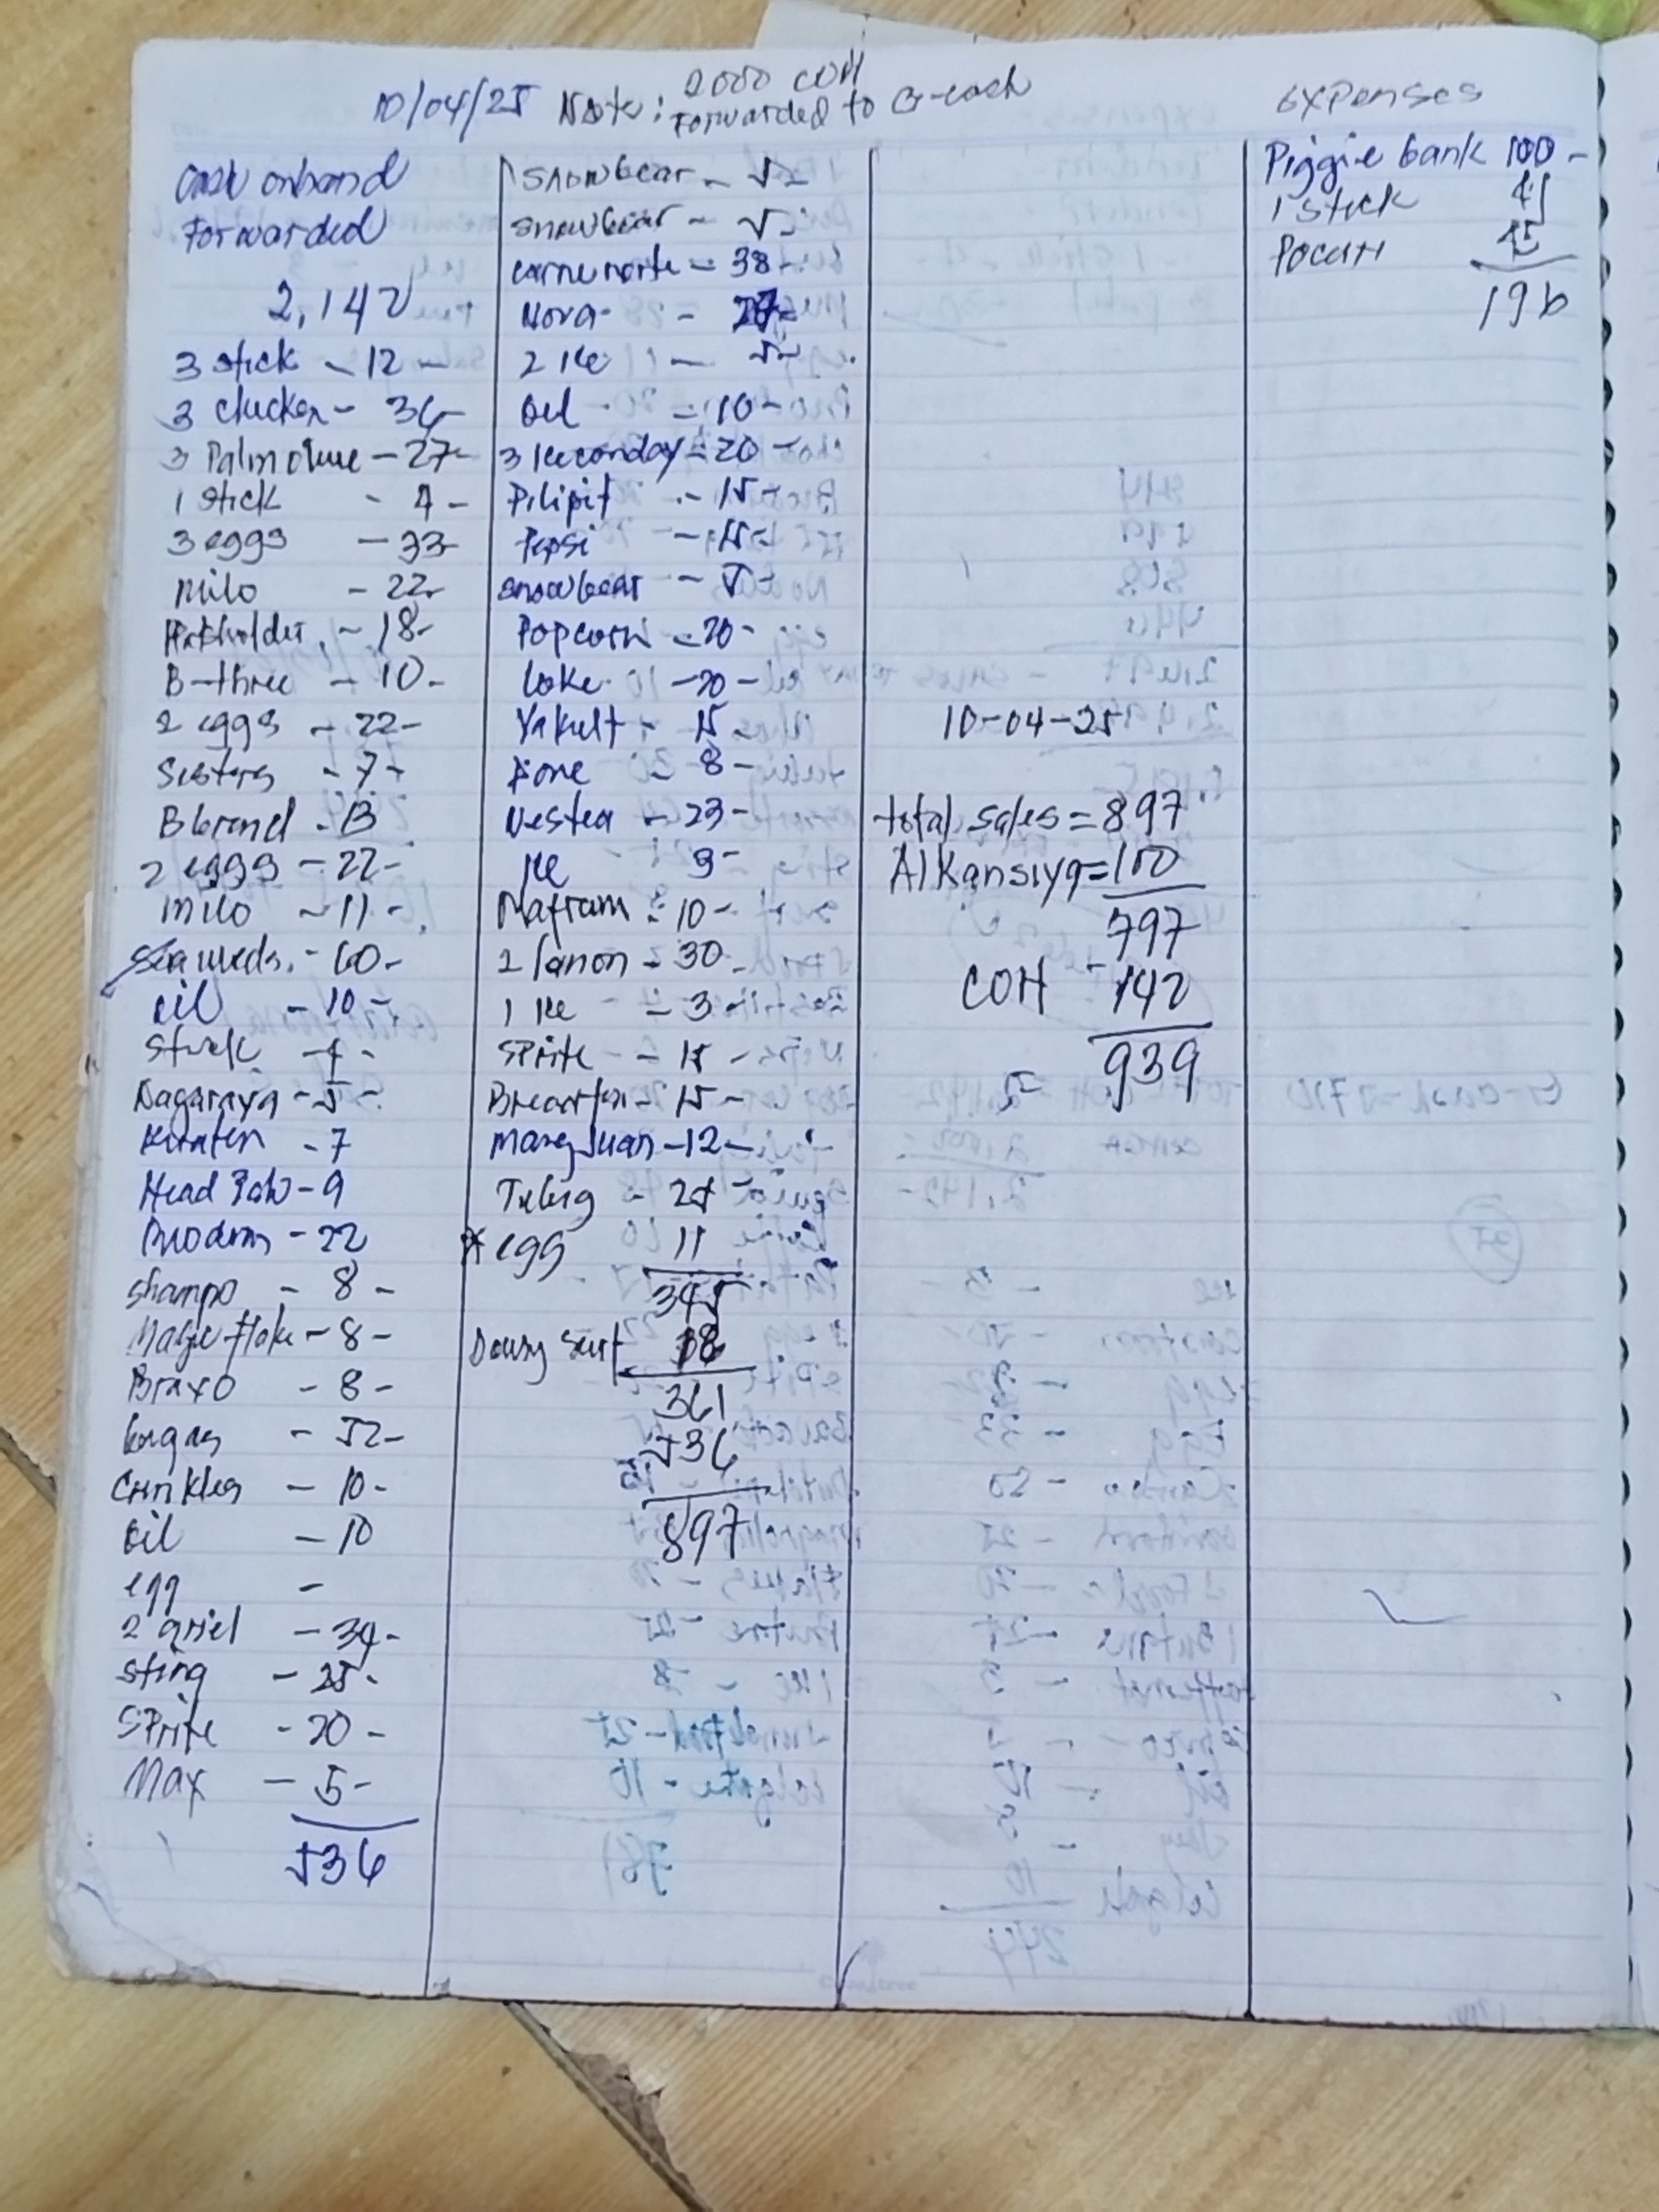 10/04/25 Note: 2000 COH
Forwarded to G-cash
Cash onhand
Forwarded
2,142
3 stick - 12 -
3 chicken - 36
3 Palmolive - 27
1 stick - 4 -
3 eggs - 33
milo - 22
- 18 -
B-three - 10 -
2 eggs - 22 -
Sisters - 7 -
B brand - 13
2 eggs - 22 -
milo - 11 -
Sea weds. - 60 -
oil - 10 -
Stick - 4 -
Nagaraya - 5 -
- 7
Head - 9
- 22
Shampo - 8 -
Magic flake - 8 -
- 8 -
- 52 -
Crinkles - 10 -
Oil - 10
egg -
2 ariel - 34 -
Sting - 25 -
SPrite - 20 -
Max - 5 -
536
Snowbear - 5 -
Snowbear - 5 -
Carne norte = 38 -
Nova -
2 Ice - 5 -
Oil = 10 -
= 20 -
Pilipit - 15 -
Pepsi - 15 -
snowbear - 5 -
Popcorn - 20 -
Coke - 20 -
Yakult - 15 -
- 8 -
Nestea - 23 -
Ice 3 -
- 10 -
2 Canon - 30 -
1 Ice = 3 -
SPrite - 15 -
- 15 -
Mang Juan - 12 -
Tubig - 25 -
* egg 11
345
Downy Surf
361
536
897
10-04-25
total sales = 897
Alkansiya = 100
797
COH - 142
939
expenses
Piggie bank 100 -
1 stick
Pocari
196